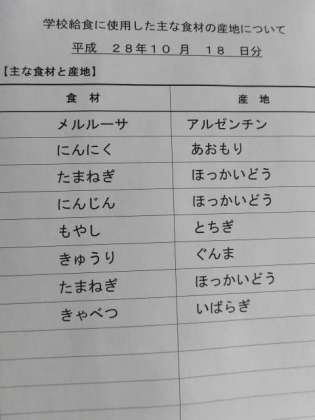 学校給食に使用した主な食材の産地について
平成 28年10 月 18 日分
【主な食材と産地】
食 材 産 地
メルルーサ アルゼンチン
にんにく あおもり
たまねぎ ほっかいどう
にんじん ほっかいどう
もやし とちぎ
きゅうり ぐんま
たまねぎ ほっかいどう
きゃべつ いばらぎ